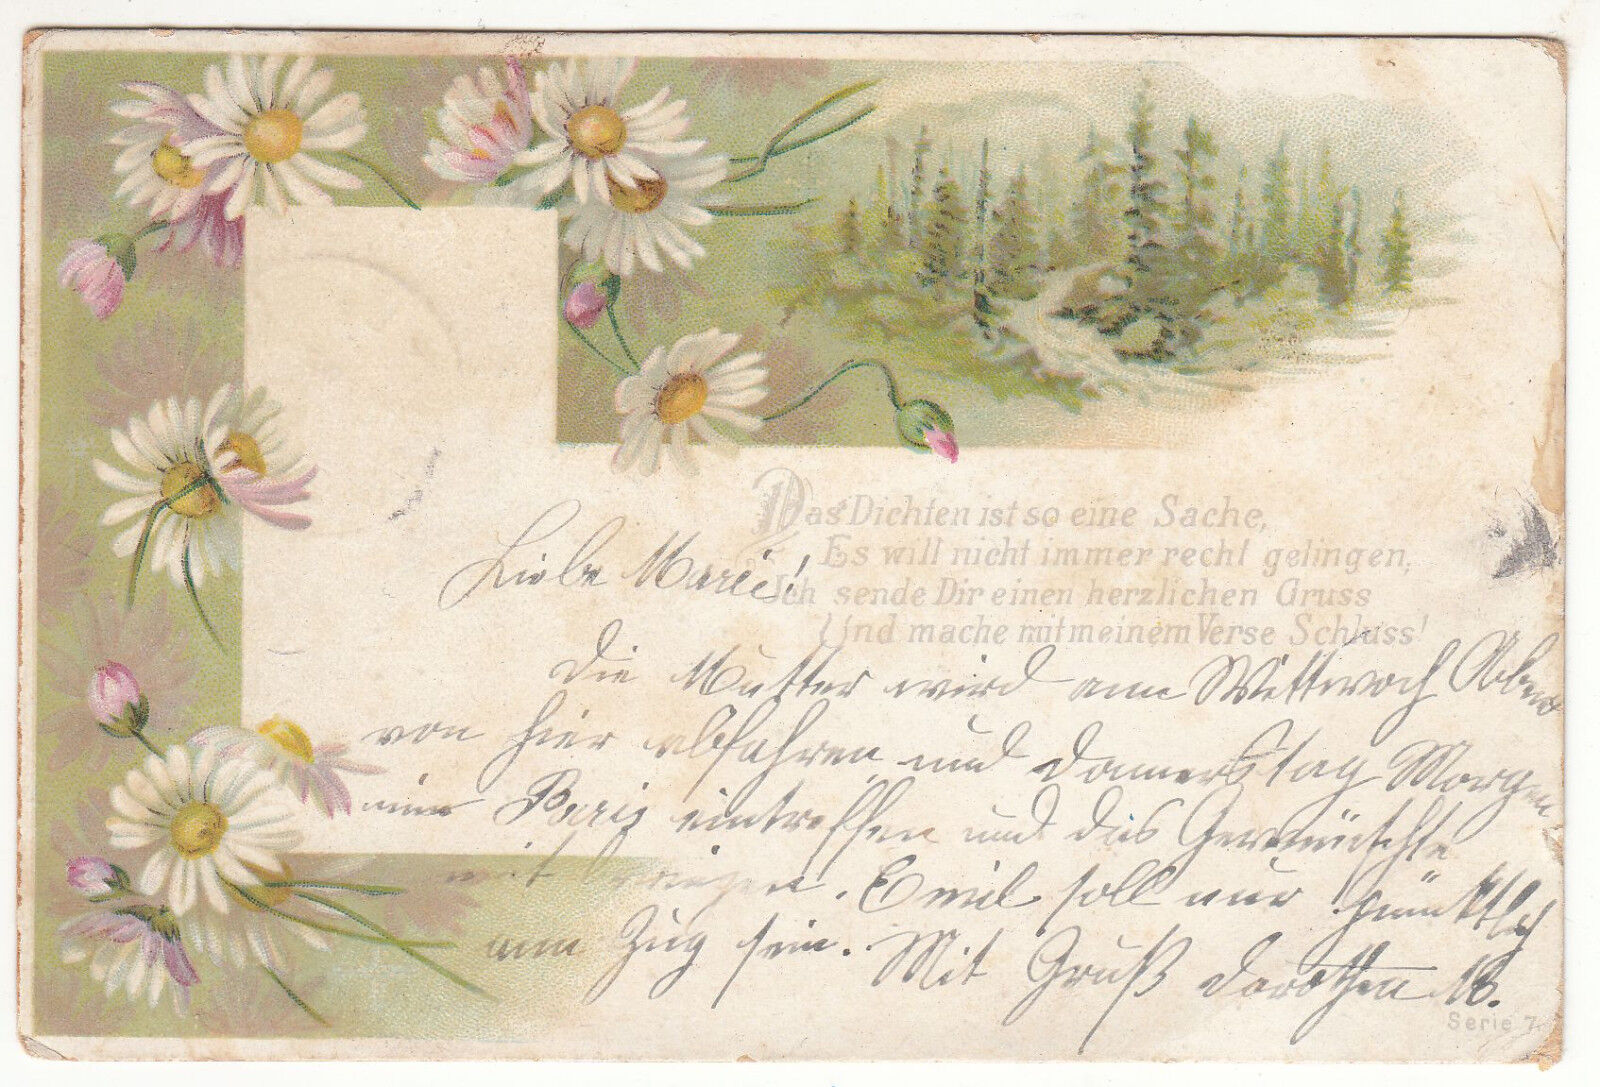 Das Dichten ist so eine Sache,
Es will nicht immer recht gelingen,
Ich sende Dir einen herzlichen Gruss
Und mache mit meinem Verse Schluss!
Liebe Marie!
Die Mutter wird am Mittwoch Abend
von hier abfahren und Donnerstag Morgen
in Paris eintreffen und das Gewünschte
mit bringen. Emil soll nur pünktlich
am Zug sein. Mit Gruß Dorothea
Serie 7